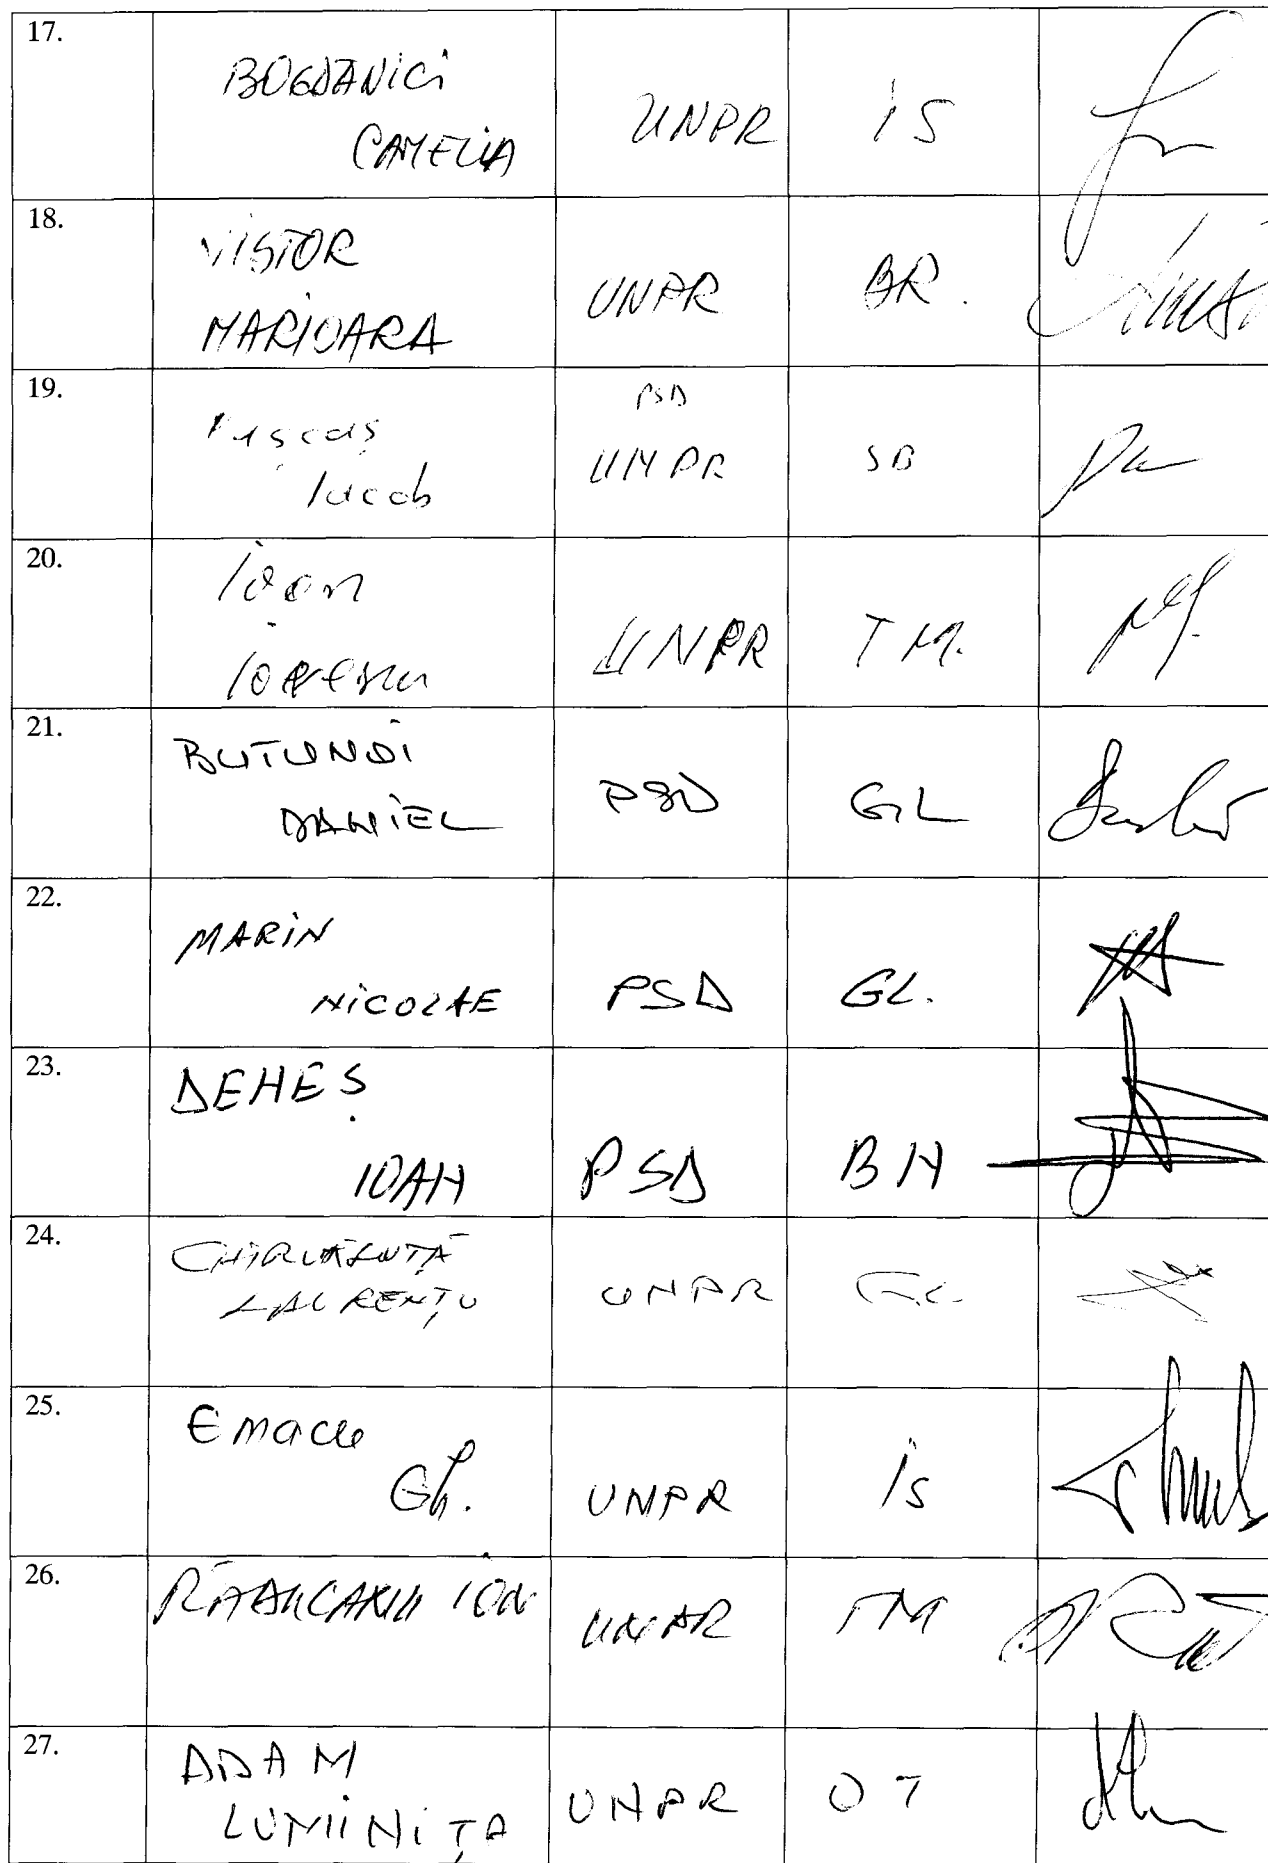 17.
BOGDANICI
CAMELIA
UNPR
IS
18.
VISTOR
MARIOARA
UNPR
BR.
19.
Pușcaș
Iacob
PSD
UNPR
SB
20.
Ioan
UNPR
TM.
21.
BUTUNOI
DANIEL
PSD
GL
22.
MARIN
NICOLAE
PSD
GL.
23.
DEHEȘ
IOAN
PSD
BH
24.
LAURENȚU
UNPR
GL.
25.
Emacu
Gh.
UNPR
is
26.
ION
UNPR
TM
27.
ADAM
LUMINIȚA
UNPR
OT